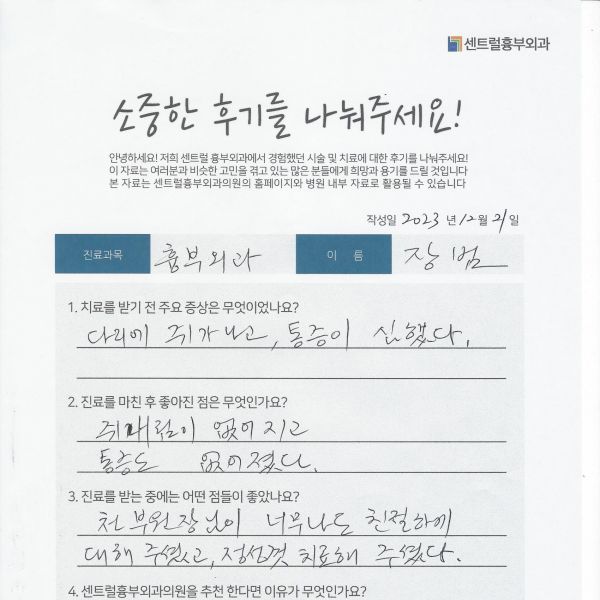 센트럴흉부외과
소중한 후기를 나눠주세요!
안녕하세요! 저희 센트럴 흉부외과에서 경험했던 시술 및 치료에 대한 후기를 나눠주세요!
이 자료는 여러분과 비슷한 고민을 겪고 있는 많은 분들에게 희망과 용기를 드릴 것입니다
본 자료는 센트럴흉부외과의원의 홈페이지와 병원 내부 자료로 활용될 수 있습니다
작성일 2023 년 12 월 21 일
진료과목 흉부외과 이 름 장 범
1. 치료를 받기 전 주요 증상은 무엇이었나요?
다리에 쥐가 나고, 통증이 심했다.
2. 진료를 마친 후 좋아진 점은 무엇인가요?
쥐내림이 없어지고
통증도 없어졌다.
3. 진료를 받는 중에는 어떤 점들이 좋았나요?
천 부원장님이 너무나도 친절하게
대해 주셨고, 정성껏 치료해 주셨다.
4. 센트럴흉부외과의원을 추천 한다면 이유가 무엇인가요?